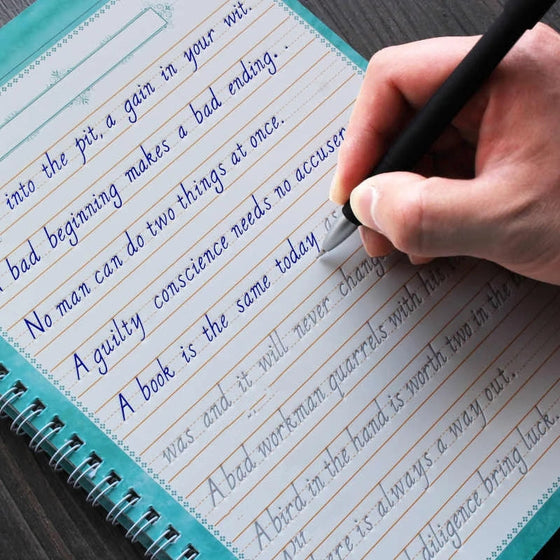 into the pit, a gain in your wit.
bad beginning makes a bad ending..
No man can do two things at once.
A guilty conscience needs no accuser
A book is the same today as
was and it will never chang
A bad workman quarrels with his
A bird in the hand is worth two in the
There is always a way out.
diligence bring luck.